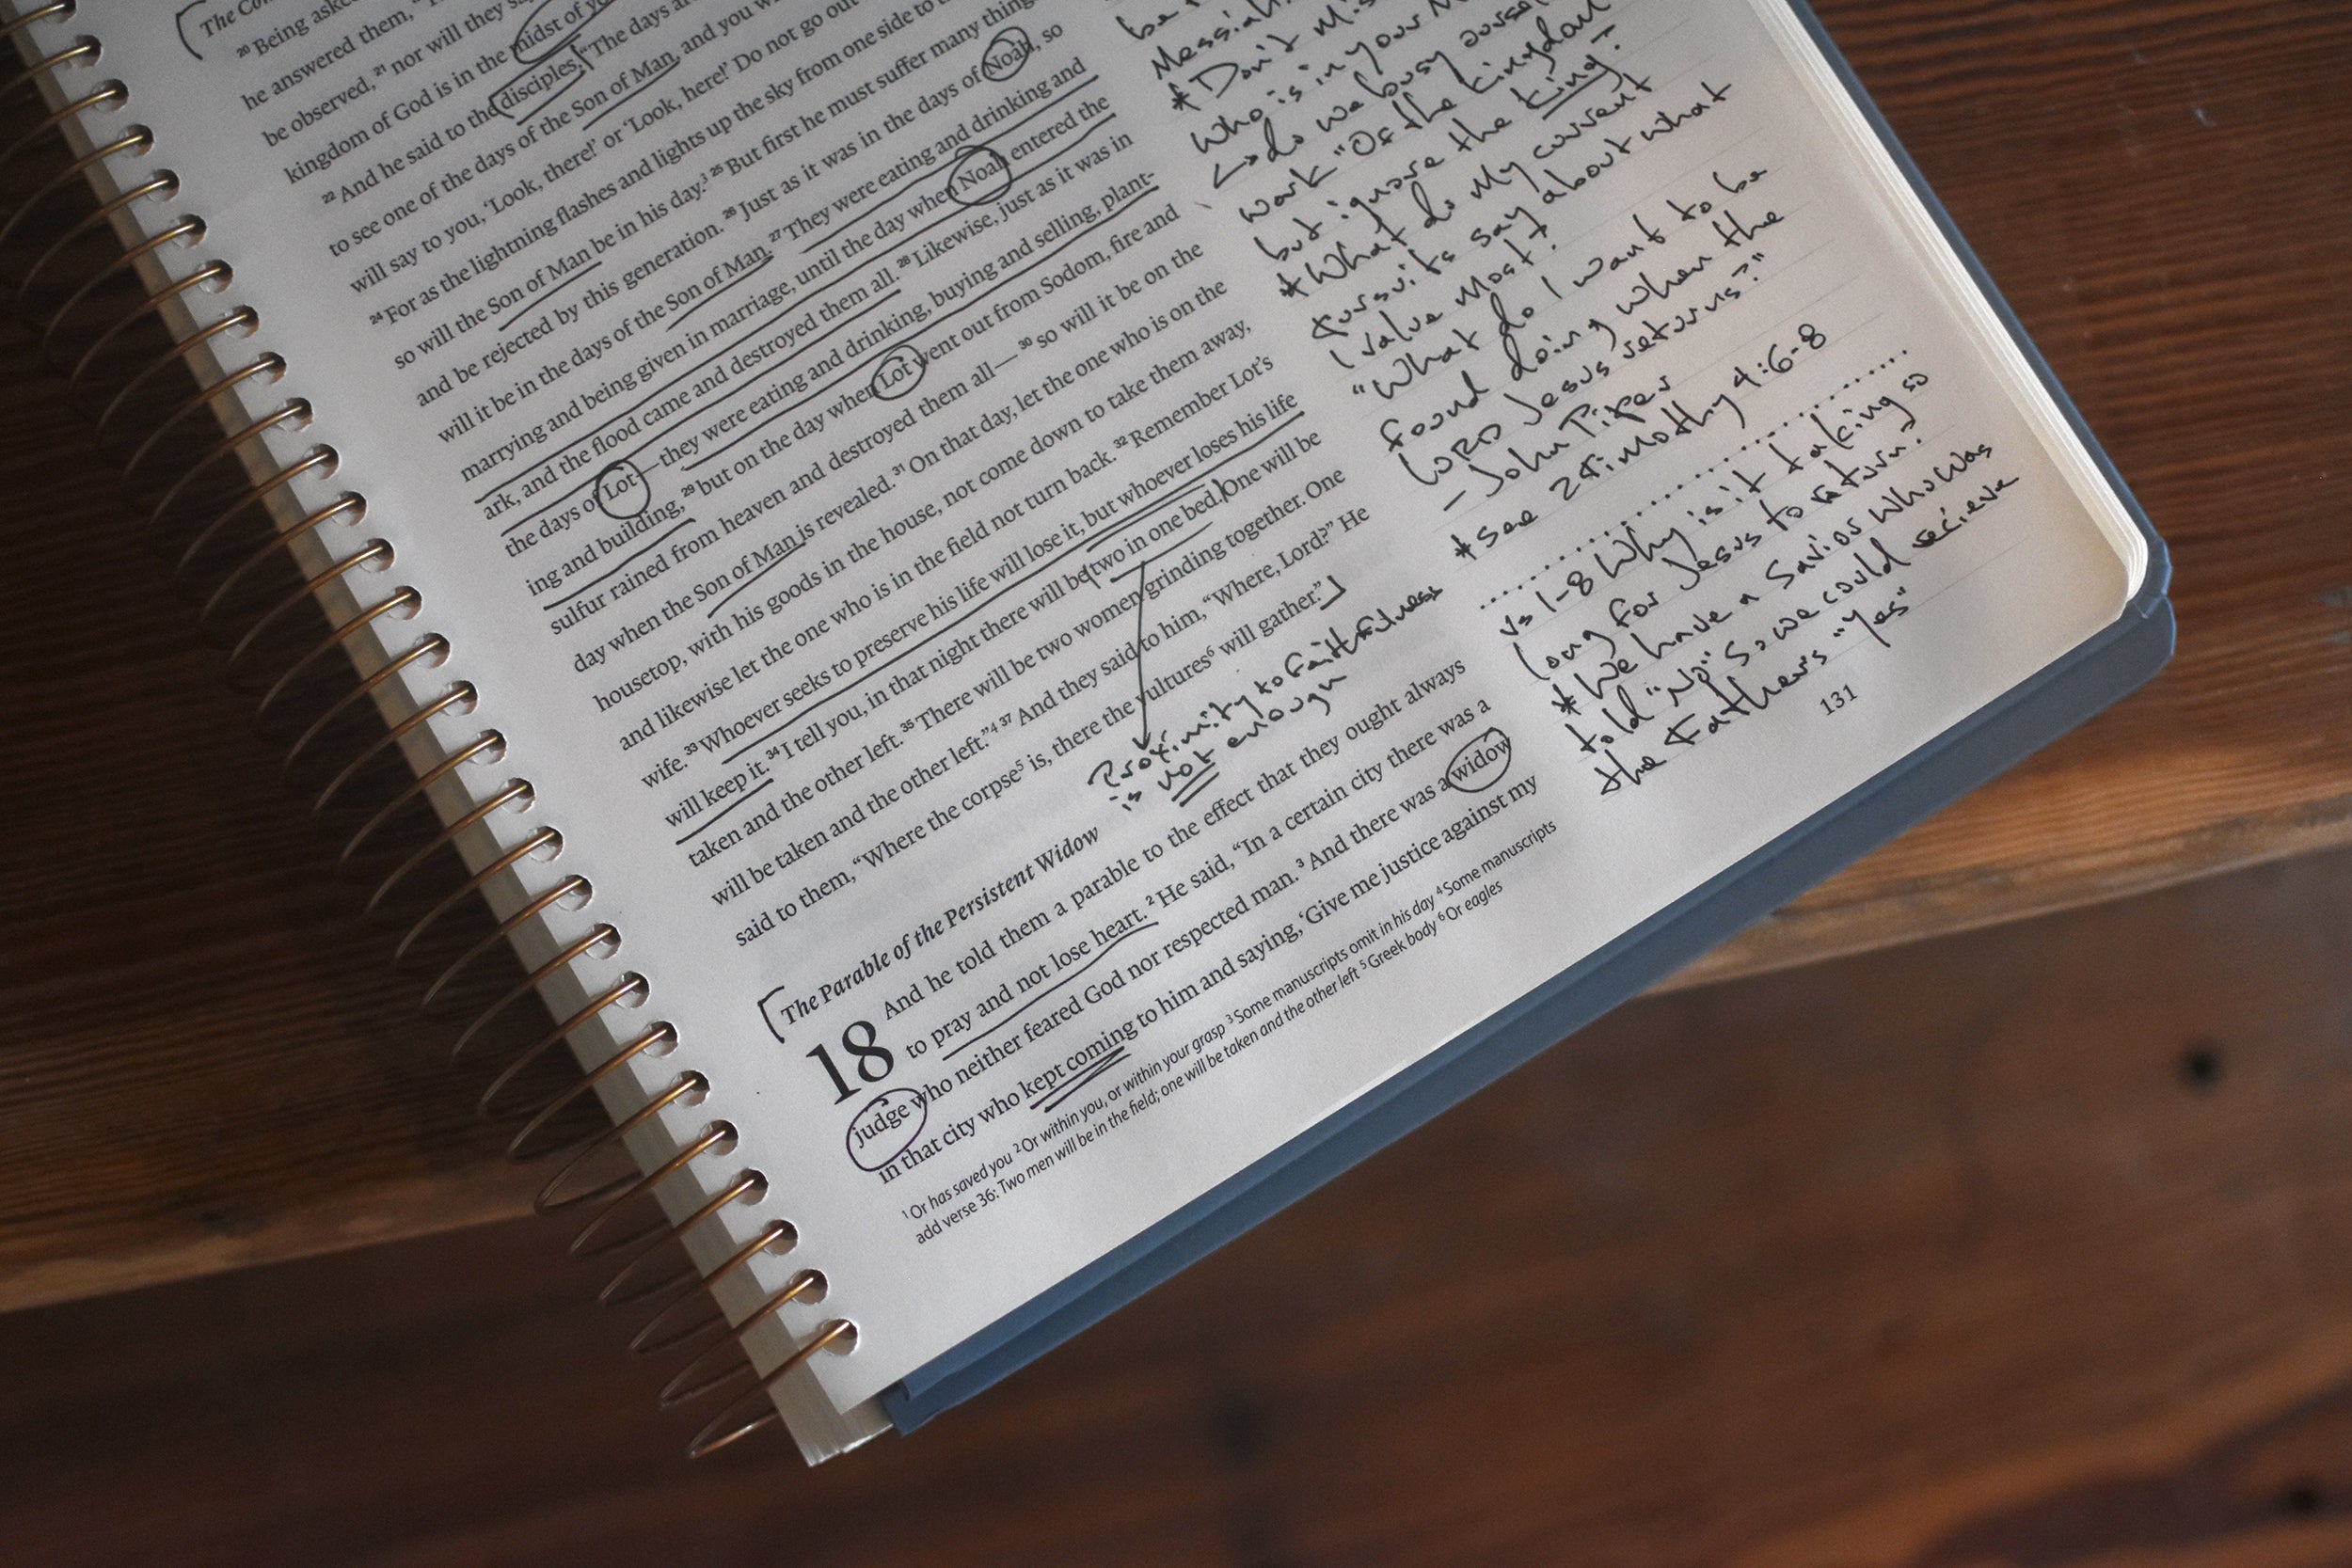 The Com
20 Being asked
he answered them, "
be observed, 21 nor will they say
kingdom of God is in the midst of yo
22 And he said to the disciples, "The days ar
to see one of the days of the Son of Man, and you wi
will say to you, 'Look, there!' or 'Look, here!' Do not go out
24 For as the lightning flashes and lights up the sky from one side to
so will the Son of Man be in his day.3 25 But first he must suffer many things
and be rejected by this generation. 26 Just as it was in the days of Noah, so
will it be in the days of the Son of Man. 27 They were eating and drinking and
marrying and being given in marriage, until the day when Noah entered the
ark, and the flood came and destroyed them all. 28 Likewise, just as it was in
the days of Lot—they were eating and drinking, buying and selling, plant-
ing and building, 29 but on the day when Lot went out from Sodom, fire and
sulfur rained from heaven and destroyed them all— 30 so will it be on the
day when the Son of Man is revealed. 31 On that day, let the one who is on the
housetop, with his goods in the house, not come down to take them away,
and likewise let the one who is in the field not turn back. 32 Remember Lot's
wife. 33 Whoever seeks to preserve his life will lose it, but whoever loses his life
will keep it. 34 I tell you, in that night there will be two in one bed. One will be
taken and the other left. 35 There will be two women grinding together. One
will be taken and the other left."4 37 And they said to him, "Where, Lord?" He
said to them, "Where the corpse5 is, there the vultures6 will gather."
Proximity to Faithfulness
is not enough
The Parable of the Persistent Widow
18 And he told them a parable to the effect that they ought always
to pray and not lose heart. 2 He said, "In a certain city there was a
judge who neither feared God nor respected man. 3 And there was a widow
in that city who kept coming to him and saying, 'Give me justice against my
1 Or has saved you 2 Or within you, or within your grasp 3 Some manuscripts omit in his day 4 Some manuscripts
add verse 36: Two men will be in the field; one will be taken and the other left 5 Greek body 6 Or eagles
be
Messiah.
* Don't Mis
who is in your M
↳ do we busy ourse
work "Of the kingdom
but ignore the king?
* What do My current
pursuits say about what
I value Most?
"What do I want to be
found doing when the
LORD Jesus returns?"
- John Piper
* See 2 Timothy 4:6-8
vs 1-8 Why is it taking so
long for Jesus to return?
* We have a Savior who was
told "No" so we could recieve
the Father's "Yes"
131